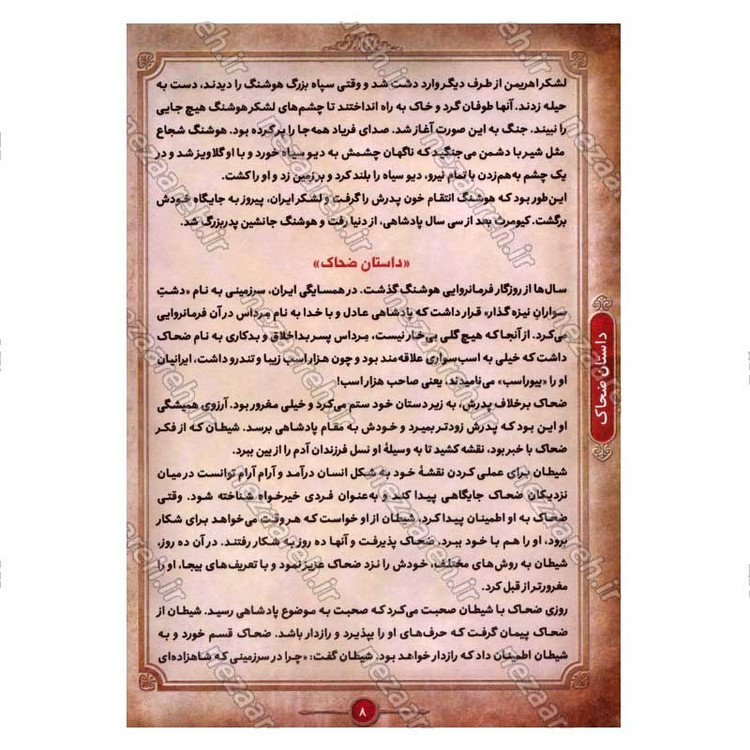 لشکر اهریمن از طرف دیگر وارد دشت شد و وقتی سپاه بزرگ هوشنگ را دیدند، دست به
حیله زدند. آنها طوفان گرد و خاک به راه انداختند تا چشم‌های لشکر هوشنگ هیچ جایی
را نبیند. جنگ به این صورت آغاز شد. صدای فریاد همه‌جا را پر کرده بود. هوشنگ شجاع
مثل شیر با دشمن می‌جنگید که ناگهان چشمش به دیو سیاه خورد و با او گلاویز شد و در
یک چشم به‌هم‌زدن با تمام نیرو، دیو سیاه را بلند کرد و بر زمین زد و او را کشت.
این‌طور بود که هوشنگ انتقام خون پدرش را گرفت و لشکر ایران، پیروز به جایگاه خودش
برگشت. کیومرث بعد از سی سال پادشاهی، از دنیا رفت و هوشنگ جانشین پدربزرگ شد.
«داستان ضحاک»
سال‌ها از روزگار فرمانروایی هوشنگ گذشت. در همسایگی ایران، سرزمینی به نام «دشتِ
سوارانِ نیزه گذار» قرار داشت که پادشاهی عادل و با خدا به نام مِرداس در آن فرمانروایی
می‌کرد. از آنجا که هیچ گلی بی‌خار نیست، مِرداس پسر بداخلاق و بدکاری به نام ضحاک
داشت که خیلی به اسب‌سواری علاقه‌مند بود و چون هزار اسب زیبا و تندرو داشت، ایرانیان
او را «بیوراسب» می‌نامیدند، یعنی صاحب هزار اسب!
ضحاک برخلاف پدرش، به زیردستان خود ستم می‌کرد و خیلی مغرور بود. آرزوی همیشگی
او این بود که پدرش زودتر بمیرد و خودش به مقام پادشاهی برسد. شیطان که از فکر
ضحاک با خبر بود، نقشه کشید تا به وسیلهٔ او نسل فرزندان آدم را از بین ببرد.
شیطان برای عملی کردن نقشهٔ خود به شکل انسان درآمد و آرام آرام توانست در میان
نزدیکان ضحاک جایگاهی پیدا کند و به‌عنوان فردی خیرخواه شناخته شود. وقتی
ضحاک به او اطمینان پیدا کرد، شیطان از او خواست که هر وقت می‌خواهد برای شکار
برود، او را هم با خود ببرد. ضحاک پذیرفت و آنها ده روز به شکار رفتند. در آن ده روز،
شیطان به روش‌های مختلف، خودش را نزد ضحاک عزیز نمود و با تعریف‌های بیجا، او را
مغرورتر از قبل کرد.
روزی ضحاک با شیطان صحبت می‌کرد که صحبت به موضوع پادشاهی رسید. شیطان از
ضحاک پیمان گرفت که حرف‌های او را بپذیرد و رازدار باشد. ضحاک قسم خورد و به
شیطان اطمینان داد که رازدار خواهد بود. شیطان گفت: «چرا در سرزمینی که شاهزاده‌ای
داستان ضحاک
۸
nezaareh.ir